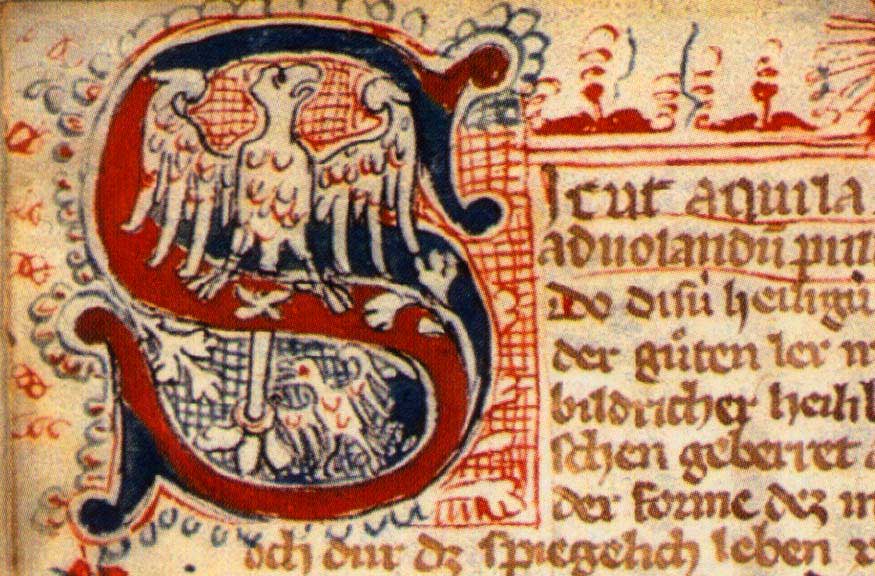 SIcut aquila
aduolandū pull
Do disů heiligů
der gůten ler
bildricher heil
schen geberret
der forme dez
och dur dz spiegelich leben